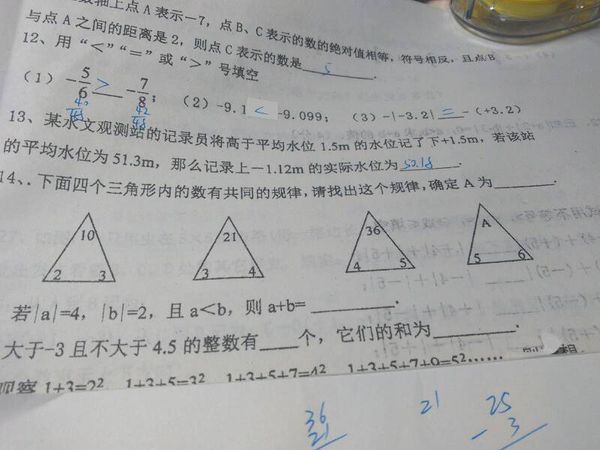 数轴上点A表示-7，点B、C表示的数的绝对值相等，符号相反，且点B
与点A之间的距离是2，则点C表示的数是 5 .
12、用“<”“=”或“>”号填空
（1）-5/6 > -7/8； （2）-9.1 < -9.099； （3）-|-3.2| = -(+3.2)
40/48 42/48
13、某水文观测站的记录员将高于平均水位1.5m的水位记了下+1.5m，若该站
的平均水位为51.3m，那么记录上-1.12m的实际水位为 50.18 .
14、．下面四个三角形内的数有共同的规律，请找出这个规律，确定A为______.
10 21 36 A
2 3 3 4 4 5 5 6
若|a|=4，|b|=2，且a<b，则a+b= ______.
大于-3且不大于4.5的整数有____个，它们的和为______.
观察1+3=2² 1+3+5=3² 1+3+5+7=4² 1+3+5+7+9=5²……
36 21 25
21 - 3